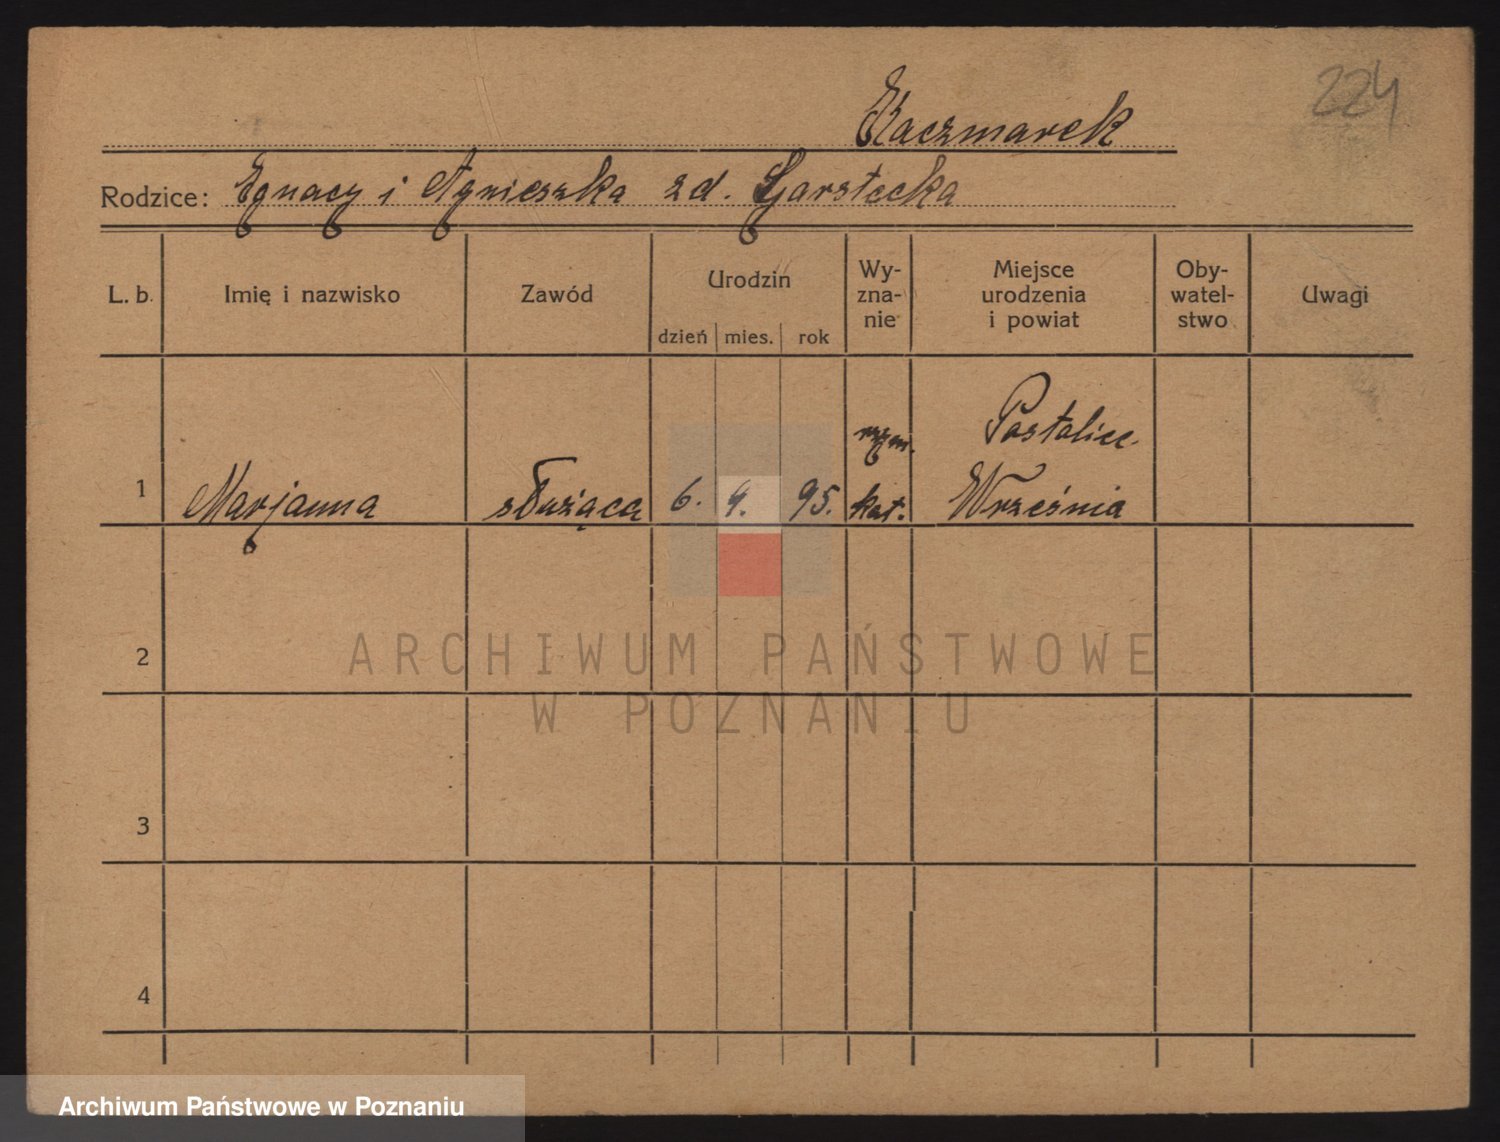 224
Kaczmarek
Rodzice: Ignacy i Agnieszka zd. Garstecka
L. b. Imię i nazwisko Zawód Urodzin Wy-zna-nie Miejsce urodzenia i powiat Oby-watel-stwo Uwagi
dzień mies. rok
1 Marjanna służąca 6. 9. 95. rzym. kat. Postalice Września
2
ARCHIWUM PAŃSTWOWE
W POZNANIU
3
4
Archiwum Państwowe w Poznaniu